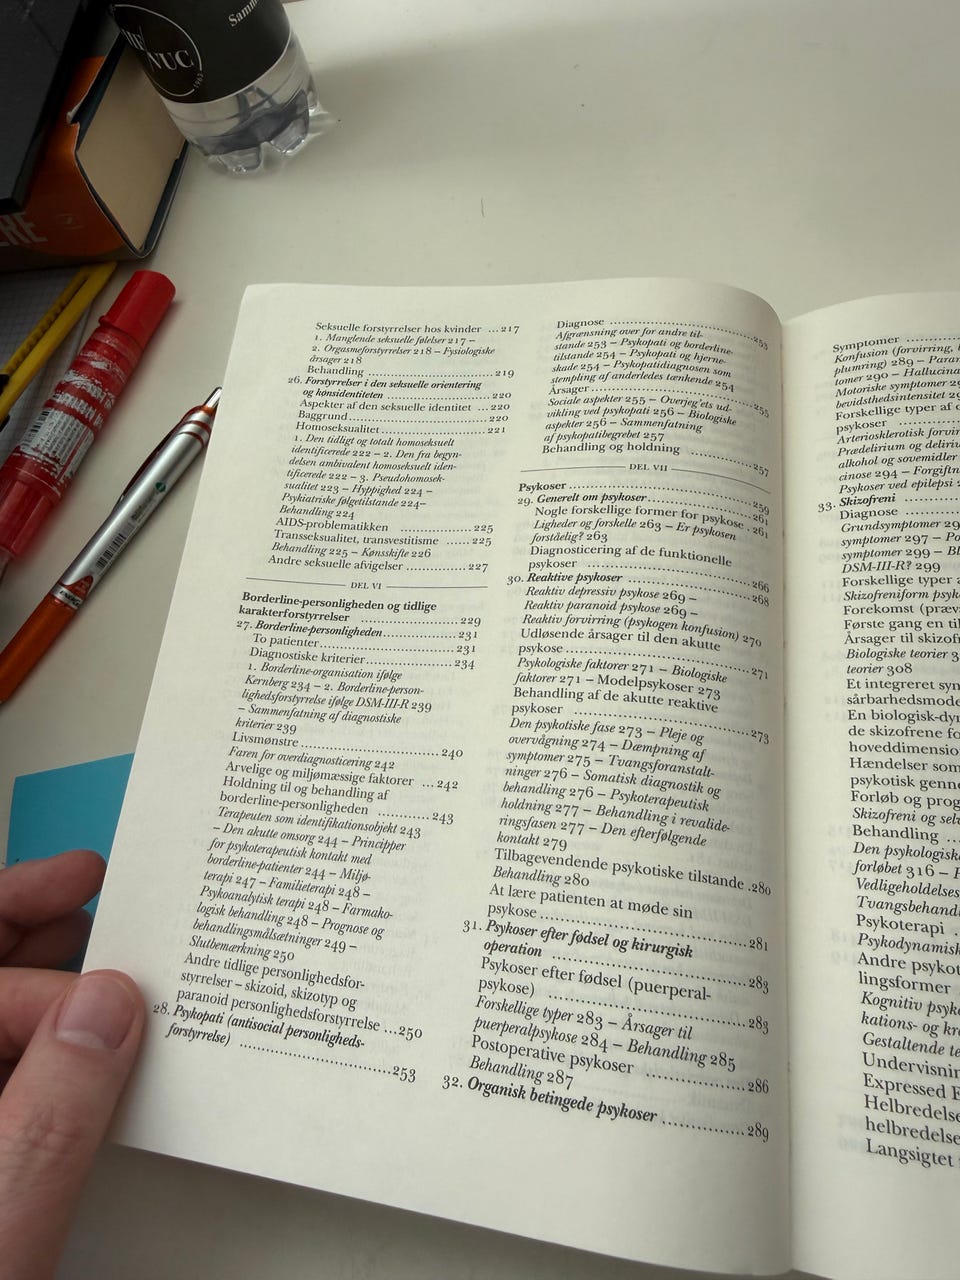 NUC
1963
Samm
ERE
Seksuelle forstyrrelser hos kvinder ...217
1. Manglende seksuelle følelser 217 –
2. Orgasmeforstyrrelser 218 – Fysiologiske
årsager 218
Behandling ....................219
26. Forstyrrelser i den seksuelle orientering
og kønsidentiteten ....................220
Aspekter af den seksuelle identitet ...220
Baggrund....................220
Homoseksualitet....................221
1. Den tidligt og totalt homoseksuelt
identificerede 222 – 2. Den fra begyn-
delsen ambivalent homoseksuelt iden-
tificerede 222 – 3. Pseudohomosek-
sualitet 223 – Hyppighed 224 –
Psykiatriske følgetilstande 224–
Behandling 224
AIDS-problematikken ....................225
Transseksualitet, transvestitisme ......225
Behandling 225 – Kønsskifte 226
Andre seksuelle afvigelser ....................227
DEL VI
Borderline-personligheden og tidlige
karakterforstyrrelser ....................229
27. Borderline-personligheden....................231
To patienter....................231
Diagnostiske kriterier....................234
1. Borderline-organisation ifølge
Kernberg 234 – 2. Borderline-person-
lighedsforstyrrelse ifølge DSM-III-R 239
– Sammenfatning af diagnostiske
kriterier 239
Livsmønstre ....................240
Faren for overdiagnosticering 242
Arvelige og miljømæssige faktorer ...242
Holdning til og behandling af
borderline-personligheden ....................243
Terapeuten som identifikationsobjekt 243
– Den akutte omsorg 244 – Principper
for psykoterapeutisk kontakt med
borderline-patienter 244 – Miljø-
terapi 247 – Familieterapi 248 –
Psykoanalytisk terapi 248 – Farmako-
logisk behandling 248 – Prognose og
behandlingsmålsætninger 249 –
Slutbemærkning 250
Andre tidlige personlighedsfor-
styrrelser – skizoid, skizotyp og
paranoid personlighedsforstyrrelse ...250
28. Psykopati (antisocial personligheds-
forstyrrelse) ....................253
Diagnose ....................253
Afgrænsning over for andre til-
stande 253 – Psykopati og borderline-
tilstande 254 – Psykopati og hjerne-
skade 254 – Psykopatidiagnosen som
stempling af anderledes tænkende 254
Årsager....................255
Sociale aspekter 255 – Overjeg'ets ud-
vikling ved psykopati 256 – Biologiske
aspekter 256 – Sammenfatning
af psykopatibegrebet 257
Behandling og holdning ....................257
DEL VII
Psykoser ....................259
29. Generelt om psykoser....................261
Nogle forskellige former for psykose .261
Ligheder og forskelle 263 – Er psykosen
forståelig? 263
Diagnosticering af de funktionelle
psykoser ....................266
30. Reaktive psykoser ....................268
Reaktiv depressiv psykose 269 –
Reaktiv paranoid psykose 269 –
Reaktiv forvirring (psykogen konfusion) 270
Udløsende årsager til den akutte
psykose ....................271
Psykologiske faktorer 271 – Biologiske
faktorer 271 – Modelpsykoser 273
Behandling af de akutte reaktive
psykoser ....................273
Den psykotiske fase 273 – Pleje og
overvågning 274 – Dæmpning af
symptomer 275 – Tvangsforanstalt-
ninger 276 – Somatisk diagnostik og
behandling 276 – Psykoterapeutisk
holdning 277 – Behandling i revalide-
ringsfasen 277 – Den efterfølgende
kontakt 279
Tilbagevendende psykotiske tilstande .280
Behandling 280
At lære patienten at møde sin
psykose ....................281
31. Psykoser efter fødsel og kirurgisk
operation ....................283
Psykoser efter fødsel (puerperal-
psykose) ....................283
Forskellige typer 283 – Årsager til
puerperalpsykose 284 – Behandling 285
Postoperative psykoser ....................286
Behandling 287
32. Organisk betingede psykoser ....................289
Symptomer
Konfusion (forvirring,
plumring) 289 – Para
tomer 290 – Hallucina
Motoriske symptomer 29
bevidsthedsintensitet 29
Forskellige typer af
psykoser
Arteriosklerotisk forvir
Prædelirium og deliriu
alkohol og sovemidler
cinose 294 – Forgiftn
Psykoser ved epilepsi 2
33. Skizofreni
Diagnose
Grundsymptomer 29
symptomer 297 – Po
symptomer 299 – Bl
DSM-III-R? 299
Forskellige typer a
Skizofreniform psyk
Forekomst (præv
Første gang en til
Årsager til skizof
Biologiske teorier 3
teorier 308
Et integreret syn
sårbarhedsmode
En biologisk-dyn
de skizofrene fo
hoveddimensio
Hændelser som
psykotisk genne
Forløb og prog
Skizofreni og selv
Behandling
Den psykologisk
forløbet 316 – F
Vedligeholdelses
Tvangsbehandl
Psykoterapi
Psykodynamisk
Andre psykot
lingsformer
Kognitiv psyk
kations- og kr
Gestaltende te
Undervisnin
Expressed E
Helbredelse
helbredelse
Langsigtet